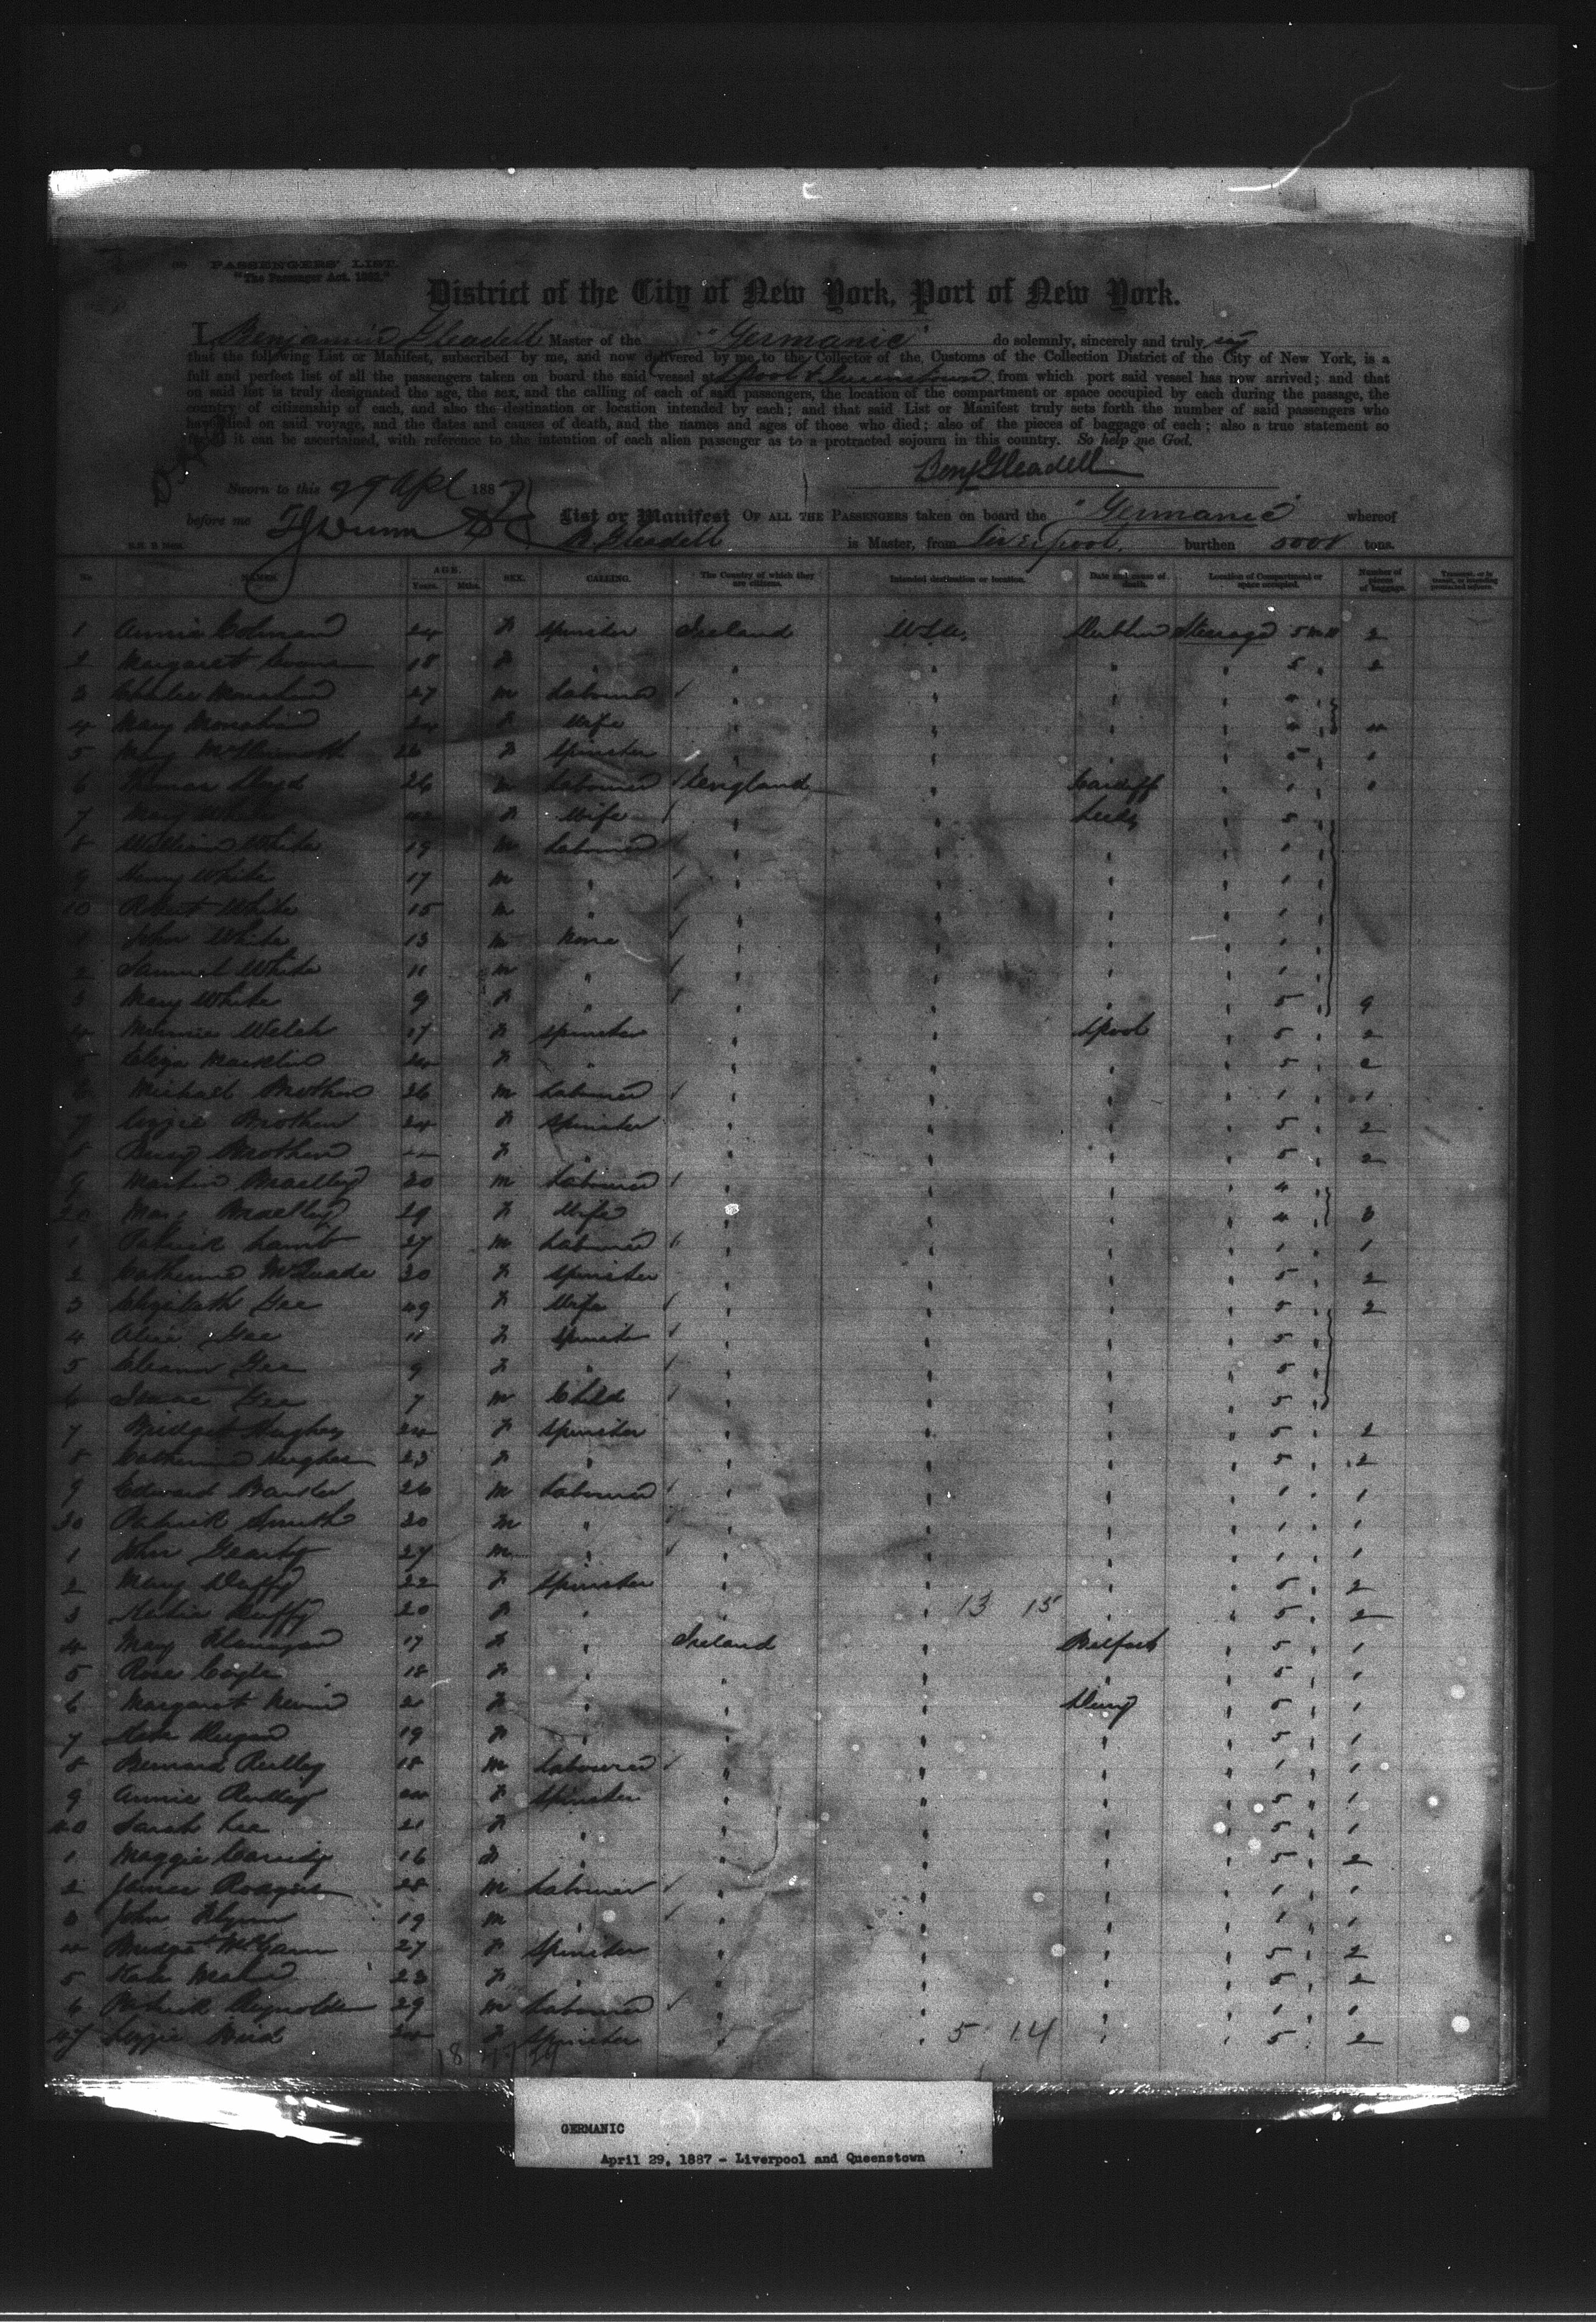 PASSENGERS' LIST.
"The Passenger Act. 1882."
District of the City of New York, Port of New York.
I, Benjamin Gleadell Master of the "Germanic" do solemnly, sincerely and truly
that the following List or Manifest, subscribed by me, and now delivered by me to the Collector of the Customs of the Collection District of the City of New York, is a
full and perfect list of all the passengers taken on board the said vessel at L'pool & Queenstown from which port said vessel has now arrived; and that
on said list is truly designated the age, the sex, and the calling of each of said passengers, the location of the compartment or space occupied by each during the passage, the
country of citizenship of each, and also the destination or location intended by each; and that said List or Manifest truly sets forth the number of said passengers who
have died on said voyage, and the dates and causes of death, and the names and ages of those who died; also of the pieces of baggage of each; also a true statement so
it can be ascertained, with reference to the intention of each alien passenger as to a protracted sojourn in this country. So help me God.
Benj Gleadell
Sworn to this 29 Apl 1887
before me
List or Manifest OF ALL THE PASSENGERS taken on board the "Germanic" whereof
B Gleadell is Master, from Liverpool, burthen 5008 tons.
No. NAMES. AGE. Years. Mths. SEX. CALLING. The Country of which they are citizens. Intended destination or location. Date and cause of death. Location of Compartment or space occupied. Number of pieces of baggage.
1 Annie Colman 24 F Spinster Ireland U.S.A. Dublin Steerage 5 2
2 Margaret 18 F " " " " 5 " 2
3 Charles Monahan 27 M Labourer " " " " 4 "
4 Mary Monahan 24 F Wife " " " " 4 " 4
5 Mary 26 F Spinster " " " " 5 " 1
6 Thomas Lloyd 26 M Labourer England " Cardiff " 1 " 1
7 Mary White 42 F Wife " " Leeds " 5 "
8 William White 19 M Labourer " " " " 1 "
9 Henry White 17 M " " " " " 1 "
10 Robert White 15 M " " " " " 1 "
1 John White 13 M None " " " " 1 "
2 Samuel White 11 M " " " " " 1 "
3 Mary White 9 F " " " " " 5 " 9
4 Minnie Welch 17 F Spinster " " L'pool " 5 " 2
5 Eliza Macklin 24 F " " " " " 5 " 2
6 Michael Brothers 26 M Labourer " " " " 1 " 1
7 Lizzie Brothers 24 F Spinster " " " " 5 " 2
8 Brothers 22 F " " " " " 5 " 2
9 Martin 30 M Labourer " " " " 4 "
20 Mary 29 F Wife " " " " 4 " 3
1 Patrick Lamb 27 M Labourer " " " " 1 " 1
2 Catherine McQuade 20 F Spinster " " " " 5 " 2
3 Elizabeth Gee 49 F Wife " " " " 5 " 2
4 Alice Gee 11 F Spinster " " " " 5 "
5 Eleanor Gee 9 F " " " " " 5 "
6 Isaac Gee 7 M Child " " " " 5 "
7 Bridget Hughes 24 F Spinster " " " " 5 " 2
8 Catherine Hughes 23 F " " " " " 5 " 2
9 Edward 26 M Labourer " " " " 1 " 1
30 Patrick Smith 20 M " " " " " 1 " 1
1 John Gearty 27 M " " " " " 1 " 1
2 Mary Duffy 22 F Spinster " " " " 5 " 2
3 Duffy 20 F " " " 13 15 " " 5 " 2
4 Mary Flanagan 17 F " Ireland " Belfast " 5 " 1
5 Rose Coyle 18 F " " " " " 5 " 1
6 Margaret Nevin 21 F " " " Derry " 5 " 1
7 Kate 19 F " " " " " 5 " 1
8 Bernard Reilley 18 M Labourer " " " " 1 " 1
9 Annie Reilley F Spinster " " " " 5 " 1
40 Sarah Lee 21 F " " " " " 5 " 1
1 Maggie Cassidy 16 F " " " " " 5 " 2
2 James Rodgers 28 M Labourer " " " " 1 " 1
3 John Flynn 19 M " " " " " 1 " 1
4 Bridget McGann 27 F Spinster " " " " 5 " 2
5 Kate 23 F " " " " " 5 " 2
6 Patrick Reynolds 29 M Labourer " " " " 1 " 1
47 Lizzie Bird 24 F Spinster " " 5 14 " " 5 " 2
GERMANIC
April 29, 1887 - Liverpool and Queenstown